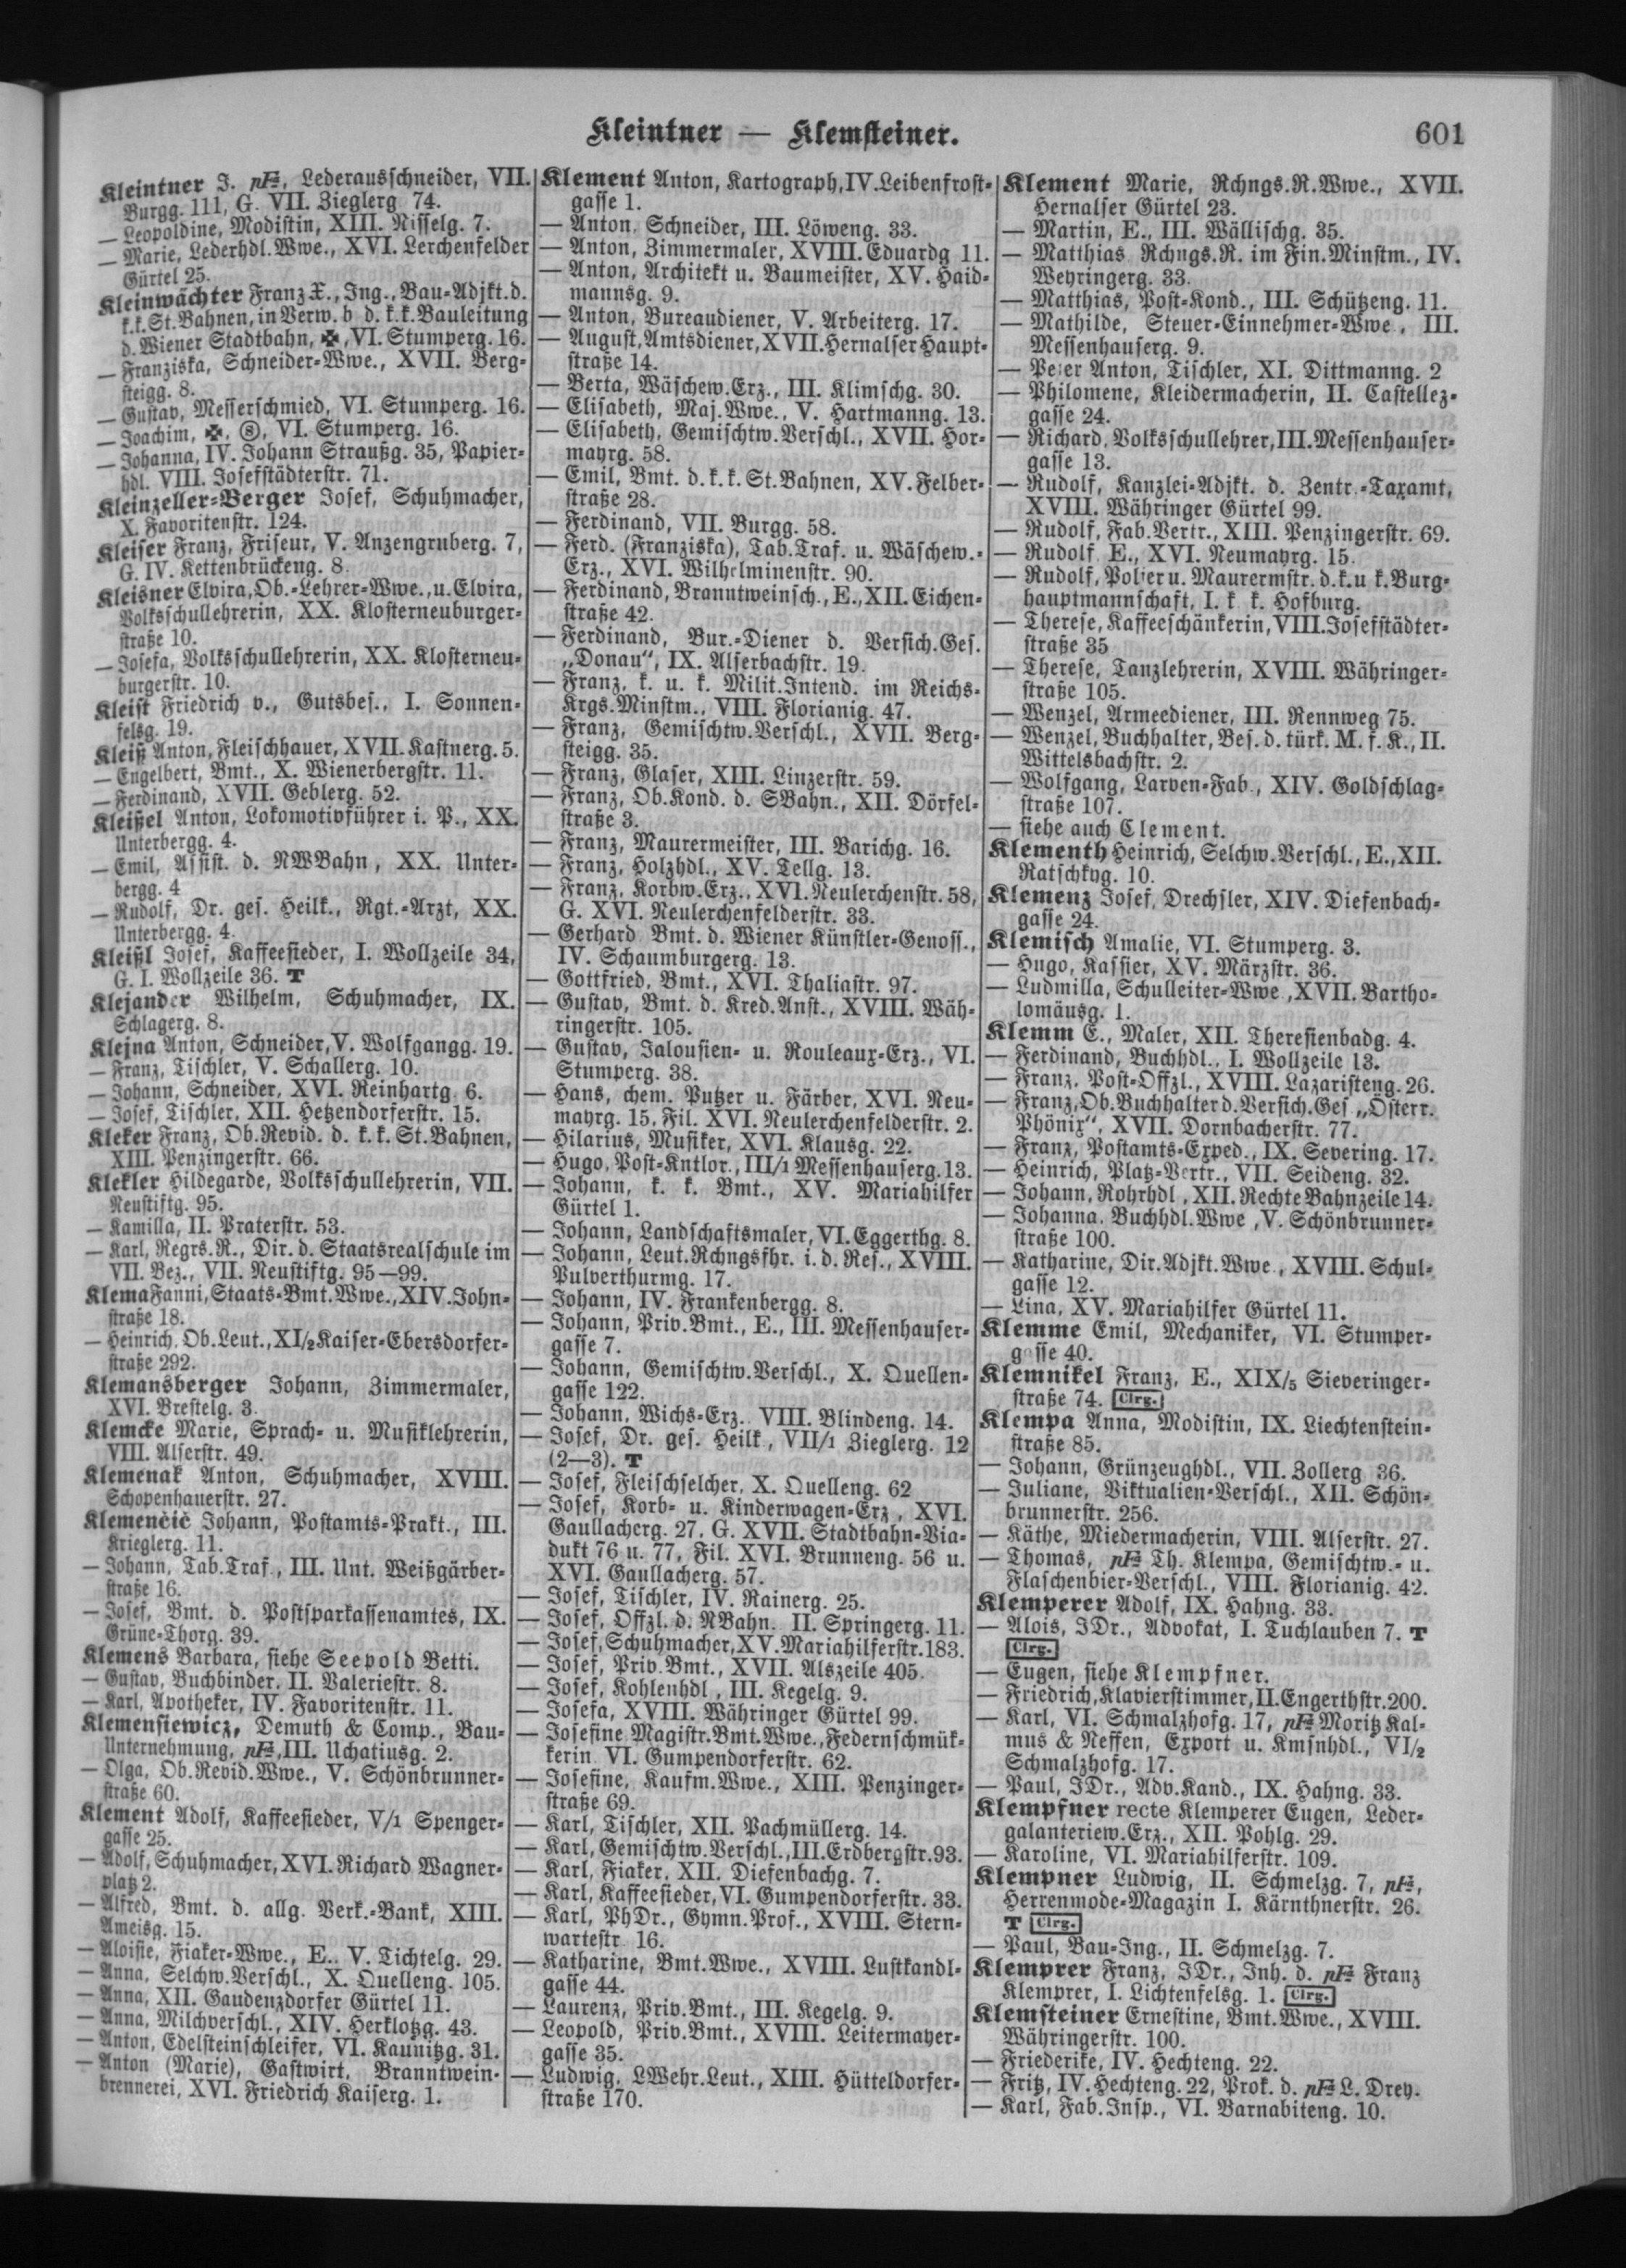 Kleintner — Klemsteiner.
601
Kleintner J. pFa, Lederausschneider, VII.
Burgg. 111, G. VII. Zieglerg 74.
— Leopoldine, Modistin, XIII. Nisselg. 7.
— Marie, Lederhdl.Wwe., XVI. Lerchenfelder
Gürtel 25.
Kleinwächter Franz X., Ing., Bau-Adjkt.d.
k.k.St.Bahnen, in Verw. b d. k.k.Bauleitung
d. Wiener Stadtbahn, ✠, VI. Stumperg. 16.
— Franziska, Schneider-Wwe., XVII. Berg-
steigg. 8.
— Gustav, Messerschmied, VI. Stumperg. 16.
— Joachim, ✠, Ⓢ, VI. Stumperg. 16.
— Johanna, IV. Johann Straußg. 35, Papier-
hdl. VIII. Josefstädterstr. 71.
Kleinzeller-Berger Josef, Schuhmacher,
X. Favoritenstr. 124.
Kleiser Franz, Friseur, V. Anzengruberg. 7,
G. IV. Kettenbrückeng. 8.
Kleisner Elvira, Ob.-Lehrer-Wwe., u. Elvira,
Volksschullehrerin, XX. Klosterneuburger-
straße 10.
— Josefa, Volksschullehrerin, XX. Klosterneu-
burgerstr. 10.
Kleist Friedrich v., Gutsbes., I. Sonnen-
felsg. 19.
Kleiß Anton, Fleischhauer, XVII. Kastnerg. 5.
— Engelbert, Bmt., X. Wienerbergstr. 11.
— Ferdinand, XVII. Geblerg. 52.
Kleißel Anton, Lokomotivführer i. P., XX.
Unterbergg. 4.
— Emil, Assist. d. NWBahn, XX. Unter-
bergg. 4
— Rudolf, Dr. ges. Heilk., Rgt.-Arzt, XX.
Unterbergg. 4.
Kleißl Josef, Kaffeesieder, I. Wollzeile 34,
G. I. Wollzeile 36. T
Klejander Wilhelm, Schuhmacher, IX.
Schlagerg. 8.
Klejna Anton, Schneider, V. Wolfgangg. 19.
— Franz, Tischler, V. Schallerg. 10.
— Johann, Schneider, XVI. Reinhartg. 6.
— Josef, Tischler, XII. Hetzendorferstr. 15.
Kleker Franz, Ob.Revid. d. k.k. St.Bahnen,
XIII. Penzingerstr. 66.
Klekler Hildegarde, Volksschullehrerin, VII.
Neustiftg. 95.
— Kamilla, II. Praterstr. 53.
— Karl, Regrs.R., Dir. d. Staatsrealschule im
VII. Bez., VII. Neustiftg. 95—99.
Klema Fanni, Staats-Bmt.Wwe., XIV. John-
straße 18.
— Heinrich, Ob.Leut., XI/2 Kaiser-Ebersdorfer-
straße 292.
Klemansberger Johann, Zimmermaler,
XVI. Brestelg. 3.
Klemcke Marie, Sprach- u. Musiklehrerin,
VIII. Alserstr. 49.
Klemenak Anton, Schuhmacher, XVIII.
Schopenhauerstr. 27.
Klemenčič Johann, Postamts-Prakt., III.
Krieglerg. 11.
— Johann, Tab.Traf., III. Unt. Weißgärber-
straße 16.
— Josef, Bmt. d. Postsparkassenamtes, IX.
Grüne-Thorg. 39.
Klemens Barbara, siehe Seepold Betti.
— Gustav, Buchbinder, II. Valeriestr. 8.
— Karl, Apotheker, IV. Favoritenstr. 11.
Klemensiewicz, Demuth & Comp., Bau-
Unternehmung, pFa, III. Uchatiusg. 2.
— Olga, Ob.Revid.Wwe., V. Schönbrunner-
straße 60.
Klement Adolf, Kaffeesieder, V/1 Spenger-
gasse 25.
— Adolf, Schuhmacher, XVI. Richard Wagner-
platz 2.
— Alfred, Bmt. d. allg. Verk.-Bank, XIII.
Ameisg. 15.
— Aloisie, Fiaker-Wwe., E., V. Tichtelg. 29.
— Anna, Selchw.Verschl., X. Quelleng. 105.
— Anna, XII. Gaudenzdorfer Gürtel 11.
— Anna, Milchverschl., XIV. Herklotzg. 43.
— Anton, Edelsteinschleifer, VI. Kaunitzg. 31.
— Anton (Marie), Gastwirt, Branntwein-
brennerei, XVI. Friedrich Kaiserg. 1.
Klement Anton, Kartograph, IV. Leibenfrost-
gasse 1.
— Anton, Schneider, III. Löweng. 33.
— Anton, Zimmermaler, XVIII. Eduardg 11.
— Anton, Architekt u. Baumeister, XV. Haid-
mannsg. 9.
— Anton, Bureaudiener, V. Arbeiterg. 17.
— August, Amtsdiener, XVII. Hernalser Haupt-
straße 14.
— Berta, Wäschew.Erz., III. Klimschg. 30.
— Elisabeth, Maj.Wwe., V. Hartmanng. 13.
— Elisabeth, Gemischtw.Verschl., XVII. Hor-
mayrg. 58.
— Emil, Bmt. d. k. k. St.Bahnen, XV. Felber-
straße 28.
— Ferdinand, VII. Burgg. 58.
— Ferd. (Franziska), Tab.Traf. u. Wäschew.-
Erz., XVI. Wilhelminenstr. 90.
— Ferdinand, Branntweinsch., E., XII. Eichen-
straße 42.
— Ferdinand, Bur.-Diener d. Versich.Ges.
„Donau“, IX. Alserbachstr. 19.
— Franz, k. u. k. Milit.Intend. im Reichs-
Krgs.Minstm., VIII. Florianig. 47.
— Franz, Gemischtw.Verschl., XVII. Berg-
steigg. 35.
— Franz, Glaser, XIII. Linzerstr. 59.
— Franz, Ob.Kond. d. SBahn., XII. Dörfel-
straße 3.
— Franz, Maurermeister, III. Barichg. 16.
— Franz, Holzhdl., XV. Tellg. 13.
— Franz, Korbw.Erz., XVI. Neulerchenstr. 58,
G. XVI. Neulerchenfelderstr. 33.
— Gerhard Bmt. d. Wiener Künstler-Genoss.,
IV. Schaumburgerg. 13.
— Gottfried, Bmt., XVI. Thaliastr. 97.
— Gustav, Bmt. d. Kred.Anst., XVIII. Wäh-
ringerstr. 105.
— Gustav, Jalousien- u. Rouleaux-Erz., VI.
Stumperg. 38.
— Hans, chem. Putzer u. Färber, XVI. Neu-
mayrg. 15, Fil. XVI. Neulerchenfelderstr. 2.
— Hilarius, Musiker, XVI. Klausg. 22.
— Hugo, Post-Kntlor., III/1 Messenhauserg. 13.
— Johann, k. k. Bmt., XV. Mariahilfer
Gürtel 1.
— Johann, Landschaftsmaler, VI. Eggerthg. 8.
— Johann, Leut.Rchngsfhr. i. d. Res., XVIII.
Pulverthurmg. 17.
— Johann, IV. Frankenbergg. 8.
— Johann, Priv.Bmt., E., III. Messenhauser-
gasse 7.
— Johann, Gemischtw.Verschl., X. Quellen-
gasse 122.
— Johann, Wichs-Erz., VIII. Blindeng. 14.
— Josef, Dr. ges. Heilk, VII/1 Zieglerg. 12
(2—3). T
— Josef, Fleischselcher, X. Quelleng. 62
— Josef, Korb- u. Kinderwagen-Erz, XVI.
Gaullacherg. 27, G. XVII. Stadtbahn-Via-
dukt 76 u. 77, Fil. XVI. Brunneng. 56 u.
XVI. Gaullacherg. 57.
— Josef, Tischler, IV. Rainerg. 25.
— Josef, Offzl. d. NBahn. II. Springerg. 11.
— Josef, Schuhmacher, XV. Mariahilferstr. 183.
— Josef, Priv.Bmt., XVII. Alszeile 405.
— Josef, Kohlenhdl, III. Kegelg. 9.
— Josefa, XVIII. Währinger Gürtel 99.
— Josefine Magistr.Bmt.Wwe., Federnschmük-
kerin VI. Gumpendorferstr. 62.
— Josefine, Kaufm.Wwe., XIII. Penzinger-
straße 69.
— Karl, Tischler, XII. Pachmüllerg. 14.
— Karl, Gemischtw.Verschl., III. Erdbergstr. 93.
— Karl, Fiaker, XII. Diefenbachg. 7.
— Karl, Kaffeesieder, VI. Gumpendorferstr. 33.
— Karl, PhDr., Gymn.Prof., XVIII. Stern-
wartestr. 16.
— Katharine, Bmt.Wwe., XVIII. Lustkandl-
gasse 44.
— Laurenz, Priv.Bmt., III. Kegelg. 9.
— Leopold, Priv.Bmt., XVIII. Leitermayer-
gasse 35.
— Ludwig, LWehr.Leut., XIII. Hütteldorfer-
straße 170.
Klement Marie, Rchngs.R.Wwe., XVII.
Hernalser Gürtel 23.
— Martin, E., III. Wällischg. 35.
— Matthias Rchngs.R. im Fin.Minstm., IV.
Weyringerg. 33.
— Matthias, Post-Kond., III. Schützeng. 11.
— Mathilde, Steuer-Einnehmer-Wwe, III.
Messenhauserg. 9.
— Peter Anton, Tischler, XI. Dittmanng. 2
— Philomene, Kleidermacherin, II. Castellez-
gasse 24.
— Richard, Volksschullehrer, III. Messenhauser-
gasse 13.
— Rudolf, Kanzlei-Adjkt. d. Zentr.-Taxamt,
XVIII. Währinger Gürtel 99.
— Rudolf, Fab.Vertr., XIII. Penzingerstr. 69.
— Rudolf E., XVI. Neumayrg. 15.
— Rudolf, Polier u. Maurermstr. d. k. u k. Burg-
hauptmannschaft, I. k k. Hofburg.
— Therese, Kaffeeschänkerin, VIII. Josefstädter-
straße 35
— Therese, Tanzlehrerin, XVIII. Währinger-
straße 105.
— Wenzel, Armeediener, III. Rennweg 75.
— Wenzel, Buchhalter, Bes. d. türk. M. f. K., II.
Wittelsbachstr. 2.
— Wolfgang, Larven-Fab., XIV. Goldschlag-
straße 107.
— siehe auch Clement.
Klementh Heinrich, Selchw.Verschl., E., XII.
Ratschkyg. 10.
Klemenz Josef, Drechsler, XIV. Diefenbach-
gasse 24.
Klemisch Amalie, VI. Stumperg. 3.
— Hugo, Kassier, XV. Märzstr. 36.
— Ludmilla, Schulleiter-Wwe, XVII. Bartho-
lomäusg. 1.
Klemm E., Maler, XII. Theresienbadg. 4.
— Ferdinand, Buchhdl., I. Wollzeile 13.
— Franz, Post-Offzl., XVIII. Lazaristeng. 26.
— Franz, Ob.Buchhalter d. Versich.Ges „Österr.
Phönix“, XVII. Dornbacherstr. 77.
— Franz, Postamts-Exped., IX. Severing. 17.
— Heinrich, Platz-Vertr., VII. Seideng. 32.
— Johann, Rohrhdl, XII. Rechte Bahnzeile 14.
— Johanna, Buchhdl.Wwe, V. Schönbrunner-
straße 100.
— Katharine, Dir.Adjkt.Wwe., XVIII. Schul-
gasse 12.
— Lina, XV. Mariahilfer Gürtel 11.
Klemme Emil, Mechaniker, VI. Stumper-
gasse 40.
Klemnikel Franz, E., XIX/5 Sieveringer-
straße 74. Clrg.
Klempa Anna, Modistin, IX. Liechtenstein-
straße 85.
— Johann, Grünzeughdl., VII. Zollerg 36.
— Juliane, Viktualien-Verschl., XII. Schön-
brunnerstr. 256.
— Käthe, Miedermacherin, VIII. Alserstr. 27.
— Thomas, pFa Th. Klempa, Gemischtw.- u.
Flaschenbier-Verschl., VIII. Florianig. 42.
Klemperer Adolf, IX. Hahng. 33.
— Alois, JDr., Advokat, I. Tuchlauben 7. T
Clrg.
— Eugen, siehe Klempfner.
— Friedrich, Klavierstimmer, II. Engerthstr. 200.
— Karl, VI. Schmalzhofg. 17, pFa Moritz Kal-
mus & Neffen, Export u. Kmsnhdl., VI/2
Schmalzhofg. 17.
— Paul, JDr., Adv.Kand., IX. Hahng. 33.
Klempfner recte Klemperer Eugen, Leder-
galanteriew.Erz., XII. Pohlg. 29.
— Karoline, VI. Mariahilferstr. 109.
Klempner Ludwig, II. Schmelzg. 7, pFa,
Herrenmode-Magazin I. Kärnthnerstr. 26.
T Clrg.
— Paul, Bau-Ing., II. Schmelzg. 7.
Klemprer Franz, JDr., Inh. d. pFa Franz
Klemprer, I. Lichtenfelsg. 1. Clrg.
Klemsteiner Ernestine, Bmt.Wwe., XVIII.
Währingerstr. 100.
— Friederike, IV. Hechteng. 22.
— Fritz, IV. Hechteng. 22, Prok. d. pFa L. Drey.
— Karl, Fab.Insp., VI. Barnabiteng. 10.